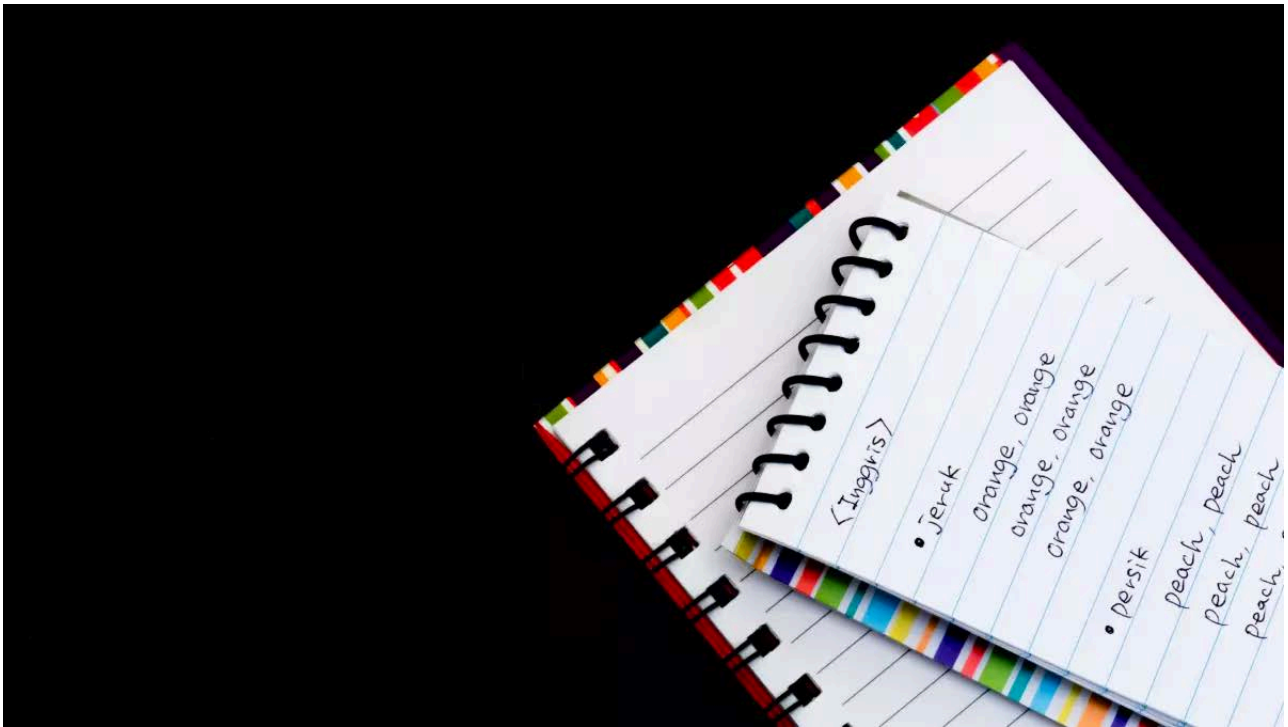 <Inggris>
• jeruk
orange, orange
orange, orange
orange, orange
• persik
peach, peach
peach, peach
peach,